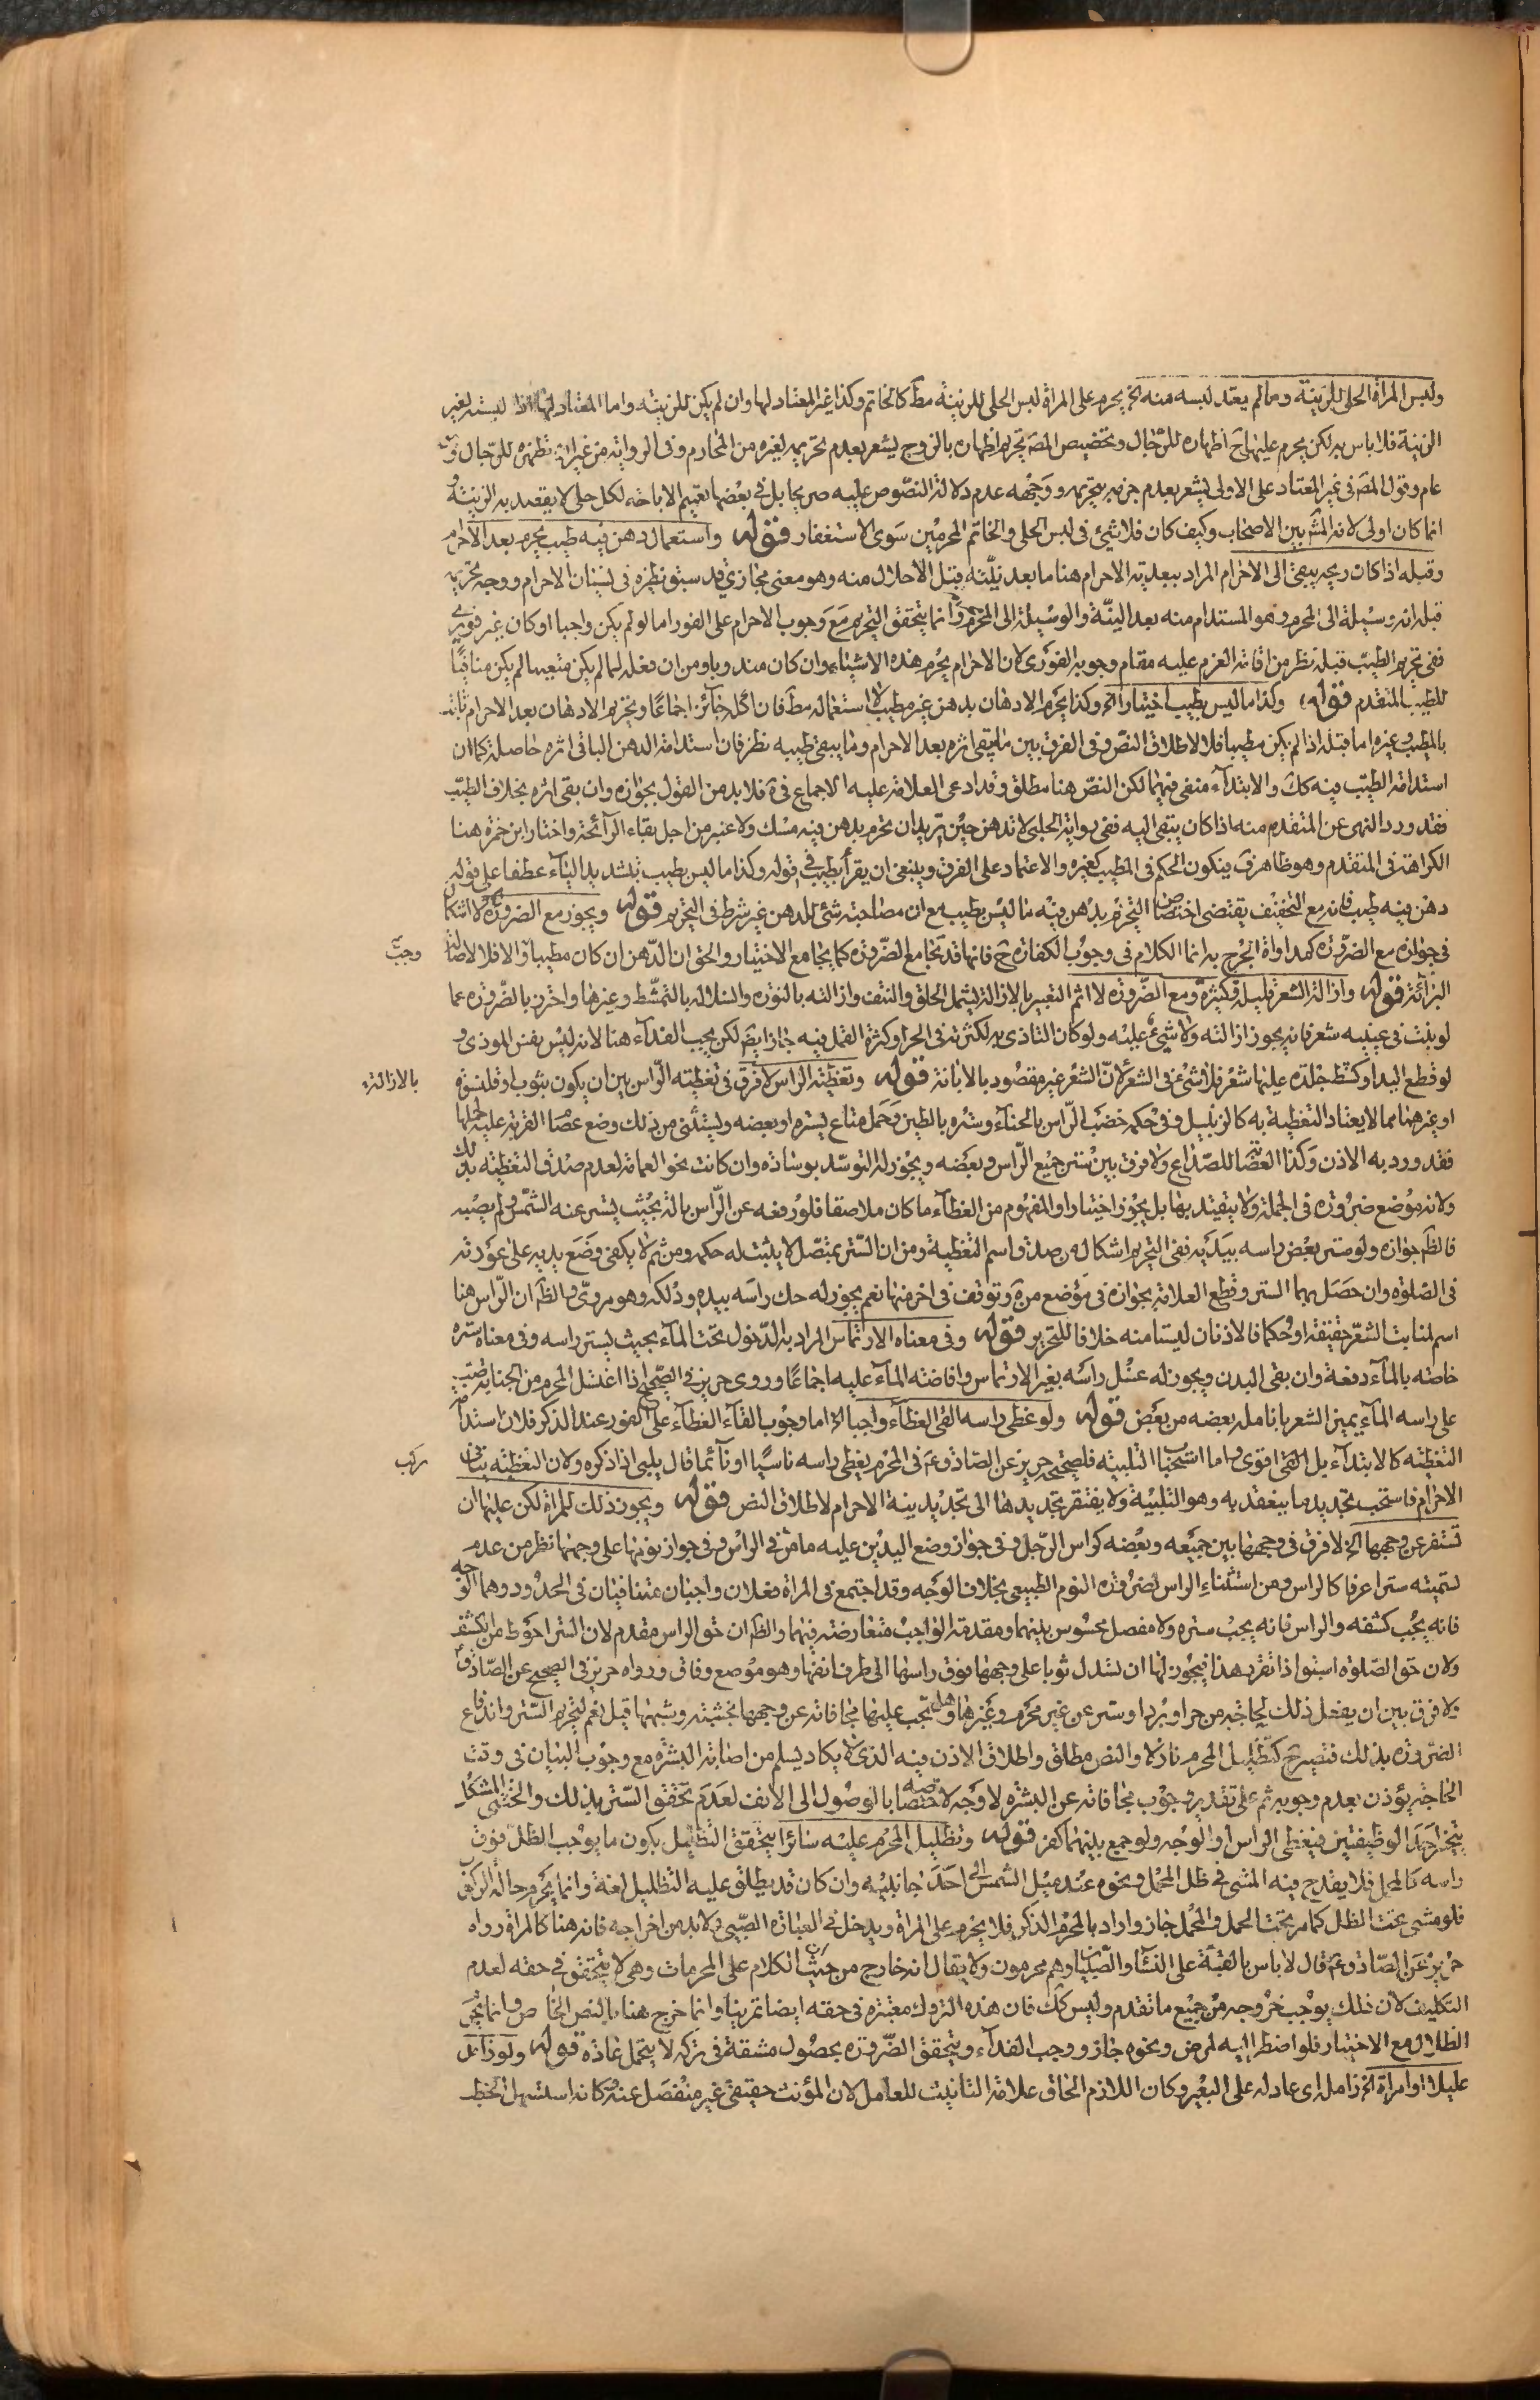 ولبس المرأة الحلى للزينة وما لم يعتد لبسه منه الخ يحرم على المرأة لبس الحلى للزينة مط كالخاتم وكذا غير المعتاد لها وان لم يكن للزينة واما المعتاد لها اذا لبسته لغير
الزينة فلا باس به لكن يحرم عليها ح اظهاره للرجال وتخصيص المصه تحريم اظهاره بالزوج يشعر بعدم تحريمه لغيره من المحارم وفى الرواية من غير ان تظهره للرجال وهو
عام وقول المصه فى غير المعتاد على الاولى يشعر بعدم جزمه بتحريمه ووجهه عدم دلالة النصوص عليه صريحا بل فى بعضها تعميم الاباحة لكل حلى لا يقصد به الزينة و
انما كان اولى لانه المش بين الاصحاب وكيف كان فلا شيئ فى لبس الحلى والخاتم المحرمين سوى الاستغفار قوله واستعمال دهن فيه طيب محرم بعد الاحرام
وقبله اذا كان ريحه يبقى الى الاحرام المراد ببعدية الاحرام هنا ما بعد نيته قبل الاحلال منه وهو معنى مجازي قد سبق نظيره فى لبسان الاحرام ووجه تحريمه
قبله انه وسيلة الى المحرم وهو المستدام منه بعد النية والوسيلة الى المحرم محرمة وانما يتحقق التحريم مع وجوب الاحرام على الفور اما لو لم يكن واجبا او كان غير فورى
ففى تحريم الطيب قبله نظر من اقامة العزم عليه مقام وجوبه الفورى لان الاحرام يحرم هذه الاشياء وان كان مندوبا ومن ان فعله لما لم يكن متعينا لم يكن منافيا
للطيب المتقدم قوله وكذا ما ليس بطيب اختيارا الخ وكذا يحرم الادهان بدهن غير مطيب لا استعماله مط فان اكله جائز اجماعا وتحريم الادهان بعد الاحرام ثابت
بالمطيب وغيره اما قبله اذا لم يكن مطيبا فلا لاطلاق النص وفى الفرق بين ما يبقى اثره بعد الاحرام وما يبقى طيبه نظر فان استدامة الدهن الباقى اثره حاصلة كما ان
استدامة الطيب فيه كك والابتداء منفى فيهما لكن النص هنا مطلق وقد ادعى العلامة عليه الاجماع فى كره فلا بد من القول بجوازه وان بقى اثره بخلاف الطيب
فقد ورد النهى عن المتقدم منه اذا كان يبقى اليه ففى رواية الحلبى لا تدهن حين تريد ان تحرم بدهن فيه مسك ولا عنبر من اجل بقاء الرائحة واختار ابن حمزة هنا
الكراهة فى المتقدم وهو ظاهر ق فيكون الحكم فى المطيب كغيره والاعتماد على الفرق وينبغى ان يقرأ بطيب فى قوله وكذا ما ليس بطيب بتشديد الياء عطفا على قوله
دهن فيه طيب فانه مع التخفيف يقتضى اختصاص التحريم بدهن فيه ما ليس بطيب مع ان مصاحبة شئ للدهن غير شرط فى التحريم قوله ويجوز مع الضرورة لا اشكال
فى جوازه مع الضرورة كمداواة الجرح به انما الكلام فى وجوب الكفارة ح فانها قد تجامع الضرورة كما تجامع الاختيار والحق ان الدهن ان كان مطيبا وجبت والا فلا لاصالة
البرائة قوله وازالة الشعر قليله وكثيره ومع الضرورة لا اثم التعبير بالازالة ليشمل الحلق والنتف وازالته بالنوره والسلاله بالتمشط وغيرها واحترز بالضرورة عما
لو نبت فى عينيه شعر فانه يجوز ازالته ولا شيئ عليه ولو كان التاذى به لكثرته فى الحر او كثرة القمل فيه جاز ايضا لكن يجب الفداء هنا لانه ليس نفس الموذى و
لو قطع اليد او كشط جلده عليها شعر فلا شئ فى الشعر لان الشعر غير مقصود بالابانة قوله وتغطية الراس لا فرق فى تغطية الراس بين ان يكون بثوب او قلنسوة
او غيرهما مما لا يعتاد التغطية به كالزنبيل وفى حكمه خضب الراس بالحناء وستره بالطين وحمل متاع يستره او بعضه ويستثنى من ذلك وضع عصام القربة عليه لحملها
فقد ورد به الاذن وكذا العصابة للصداع ولا فرق بين ستر جميع الراس وبعضه ويجوز له التوسد بوسادة وان كانت بنحو العمامة لعدم صدق التغطية بذلك
ولانه موضع ضرورة فى الجملة ولا يتقيد بها بل يجوز اختيارا والمفهوم من الغطاء ما كان ملاصقا فلو رفعه عن الراس بالة بحيث يستر عنه الشمس ولم يصبه
فالظ جوازه ولو ستر بعض راسه بيديه ففى التحريم اشكال من صدق اسم التغطية ومن ان الستر بمتصل لا يثبت له حكمه ومن ثم لا يكفى وضع يديه على عورته
فى الصلوة وان حصل بهما الستر وقطع العلامة بجوازه فى موضع من كره وتوقف فى اخر منها نعم يجوز له حك راسه بيده ودلكه وهو مروى والظ ان الراس هنا
اسم لمنابت الشعر حقيقة او حكما فالاذنان ليستا منه خلافا للتحرير قوله وفى معناه الارتماس المراد به الدخول تحت الماء بحيث يستر راسه وفى معناه ستره
خاصة بالماء دفعة وان بقى البدن ويجوز له غسل راسه بغير الارتماس وافاضة الماء عليه اجماعا وروى حريز فى الصحيح اذا اغتسل المحرم من الجنابة صب
على راسه الماء يميز الشعر بانامله بعضه من بعض قوله ولو غطى راسه القى الغطاء واجبا الخ اما وجوب القاء الغطاء على الفور عند الذكر فلان استدامة
التغطية كالابتداء بل اقوى واما استحباب التلبية فلصحيح حريز عن الصادق ع فى المحرم يغطى راسه ناسيا او نائما قال يلبى اذا ذكره ولان التغطية تنافى
الاحرام فاستحب تجديد ما ينعقد به وهو التلبية ولا يفتقر تجديدها الى تجديد نية الاحرام لاطلاق النص قوله ويجوز ذلك للمراة لكن عليها ان
تسفر عن وجهها الخ لا فرق فى وجهها بين جميعه وبعضه كراس الرجل وفى جواز وضع اليدين عليه ما مر فى الراس وفى جواز نومها على وجهها نظر من عدم
تسميته سترا عرفا كالراس ومن استثناء الراس لضرورة النوم الطبيعى بخلاف الوجه وقد اجتمع فى المراة فعلان واجبان متنافيان فى الحدود وهما الوجه
فانه يجب كشفه والراس فانه يجب ستره ولا مفصل محسوس بينهما ومقدمة الواجب متعارضة فيهما والظ ان حق الراس مقدم لان الستر احوط من الكشف
ولان حق الصلوة اسبق اذا تقرر هذا فيجوز لها ان تسدل ثوبا على وجهها فوق راسها الى طرف انفها وهو موضع وفاق ورواه حريز فى الصحيح عن الصادق ع
ولا فرق بين ان يفعل ذلك لحاجة من حر او برد او ستر عن غير محرم وغيرها وهل تجب عليها مجافاته عن وجهها بخشبة وشبهها قيل نعم لتحريم الستر واندفاع
الضرورة بذلك فتصير ح كتظليل المحرم نازلا والنص مطلق واطلاق الاذن فيه الذى لا يكاد يسلم من اصابة البشرة مع وجوب البيان فى وقت
الحاجة يؤذن بعدم وجوبه ثم على تقدير وجوب مجافاته عن البشرة لا وجه لاختصاصه بالوصول الى الانف لعدم تحقق الستر بذلك والخنثى المشكل
يتخير احد الوظيفتين فيغطى الراس او الوجه ولو جمع بينهما كفر قوله وتظليل المحرم عليه سائرا يتحقق التظليل بكون ما يوجب الظل فوق
راسه كالمحمل فلا يقدح فيه المشى فى ظل المحمل ونحوه عند ميل الشمس الى احد جانبيه وان كان قد يطلق عليه التظليل لغة وانما يحرم حالة الركوب
فلو مشى تحت الظل كما مر تحت الحمل والمحمل جاز واراد بالمحرم الذكر فلا يحرم على المراة ويدخل فى العبارة الصبى ولا بد من اخراجه فانه هنا كالمراة رواه
حريز عن الصادق ع قال لا باس بالقبة على النساء والصبيان وهم محرمون ولا يقال انه خارج من حيث ان الكلام على المحرمات وهى لا يتحقق فى حقه لعدم
التكليف لان ذلك يوجب خروجه من جميع ما تقدم وليس كك فان هذه التروك معتبرة فى حقه ايضا تمرينا وانما خرج هنا بالنص الخاص وانما يحرم
الظلال مع الاختيار فلو اضطر اليه لمرض ونحوه جاز ووجب الفداء ويتحقق الضرورة بحصول مشقة فى تركه لا يتحمل عادة قوله ولو زامل
عليلا او امراة الخ زامله اى عادله على البعير وكان اللازم الحاق علامة التانيث للعامل لان المؤنث حقيقى غير منفصل عنه وكانه استسهل الخطب
وجبت
بالازالة
ركب